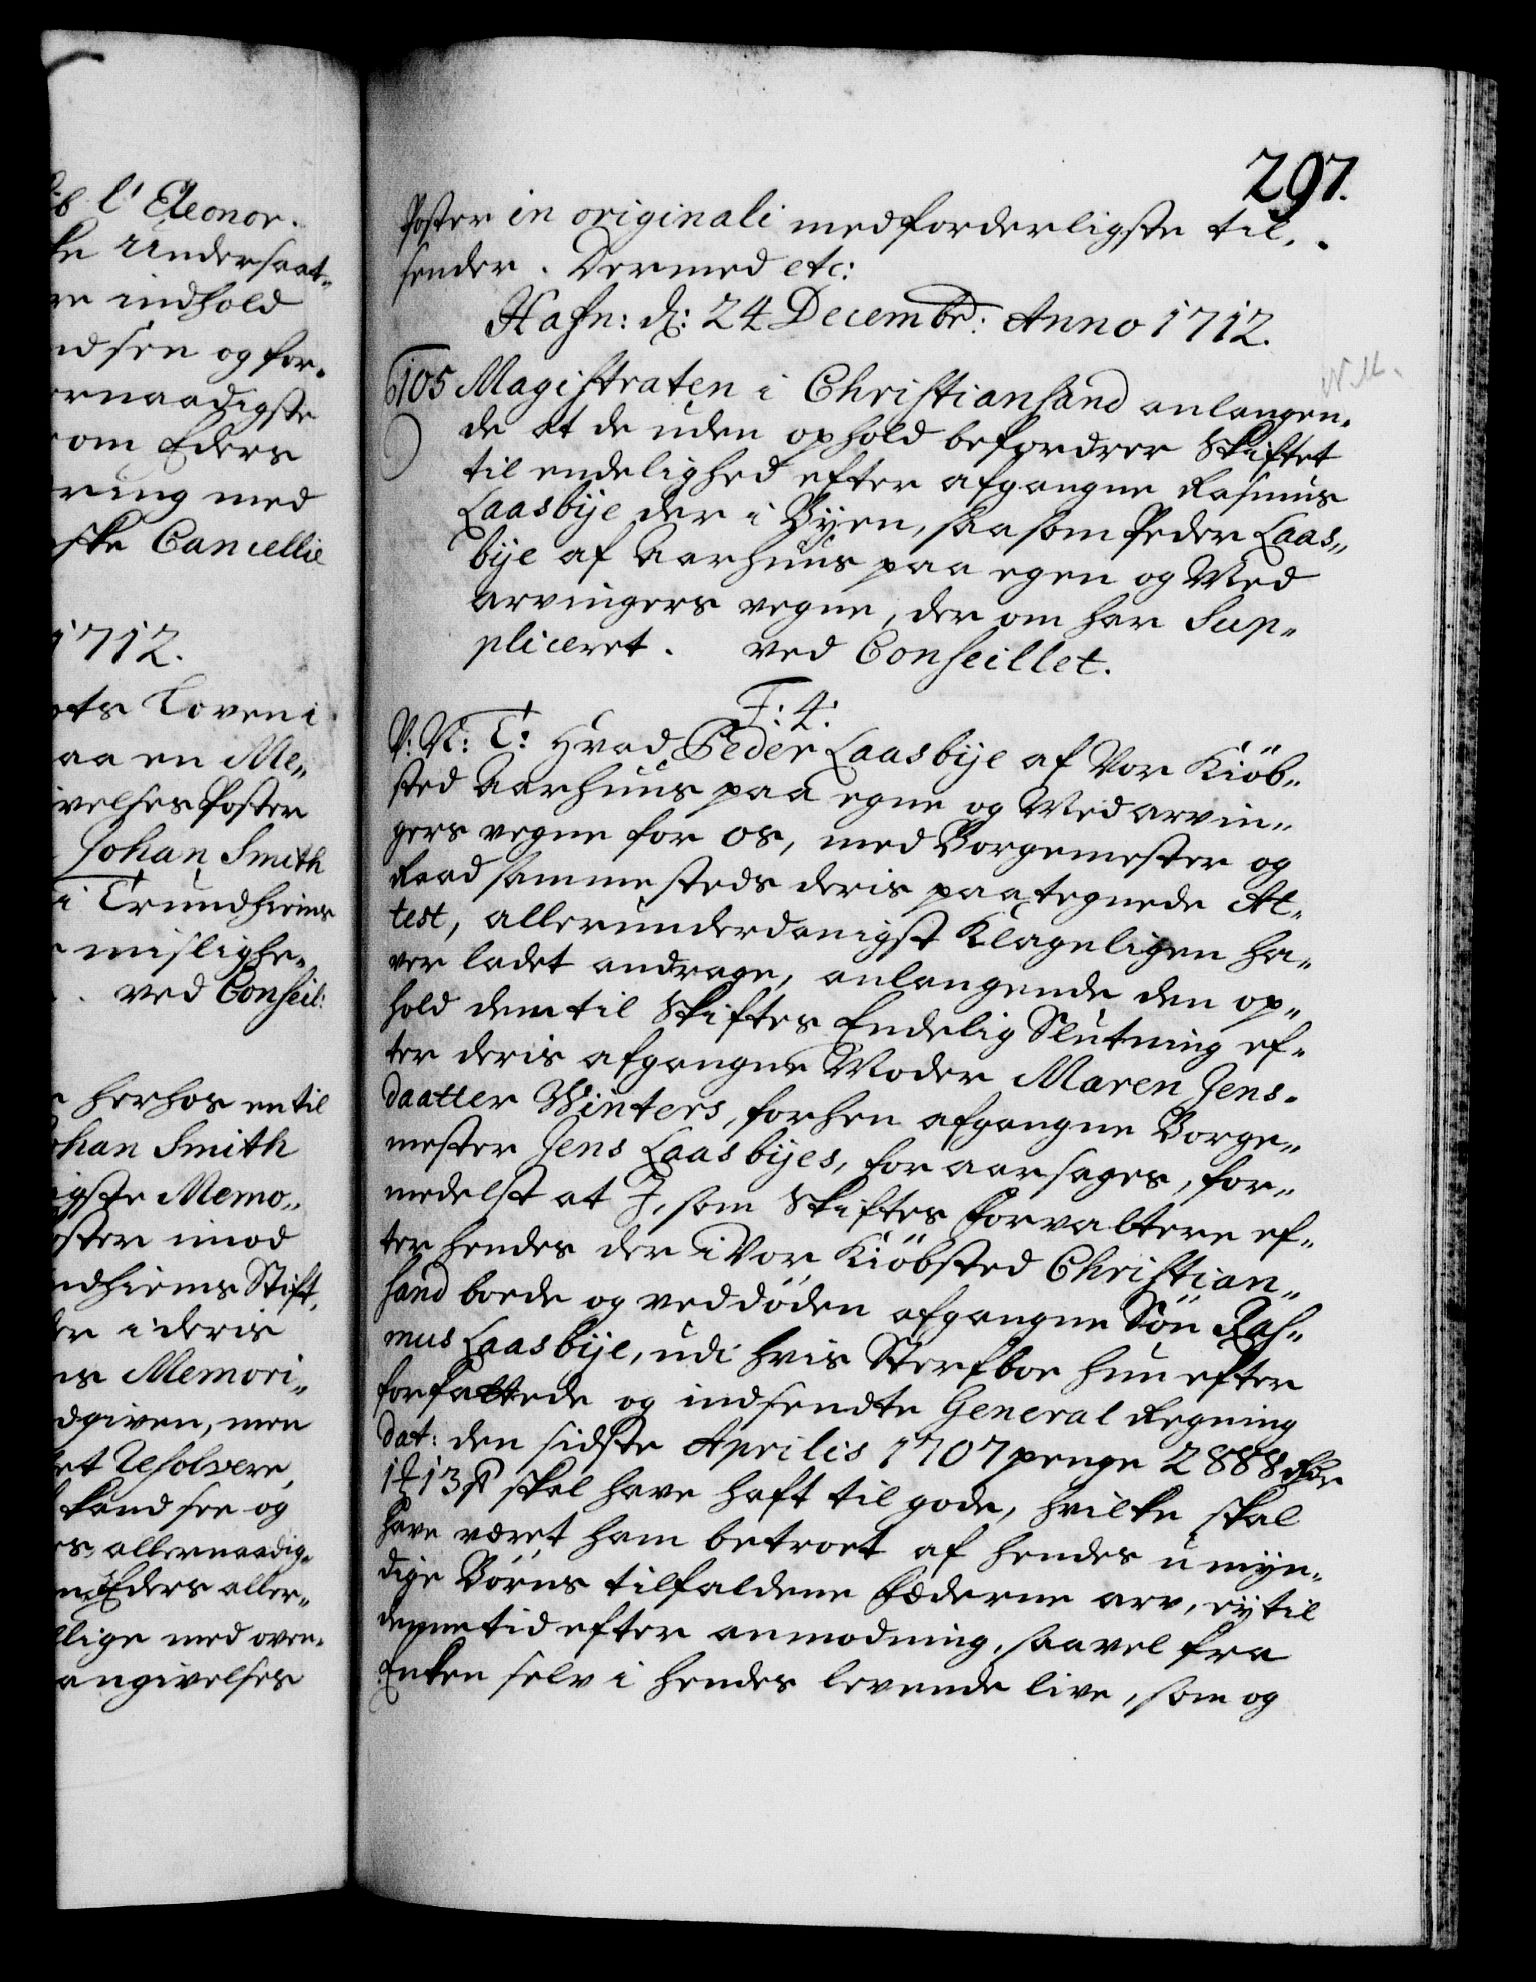 l: Eleonor.
ke Undersaat-
re indhold
ndsen og for-
ernaadigste
om Eders
ring med
ske Cancellie
1712.
ots Loven i
aa en Me-
ivelses Poster
Johan Smith
i Trundhiems
mislighe-
. ved Conseil:
herhos en til
ohan Smith
igste Memo-
oster imod
ndhiems Stift,
er i deris
es Memori-
dgiven, men
et Resolvere,
kand see og
es, allernaadig-
Eders aller-
llige med oven-
angivelses
297.
Poster in originali medforderligste til-
sender. Dermed etc:
Hafn: d: 24 Decembr: Anno 1712.
N.M.
105 Magistraten i Christiansand anlangen-
de at de uden ophold befordrer Skiftet
til endelighed efter afgangne Rasmus
Laasbÿe der i Bÿen, saasom Peder Laas-
bÿe af Aarhuus paa egen og Med
arvingers vegne, der om har Sup-
pliceret. ved Conseillet.
F: 4:
P: N: T: Hvad Peder Laasbÿe af Vor Kiöb-
sted Aarhuus paa egne og Medarvin-
gers vegne for os, med Borgemester og
Raad sammesteds deris paategnede At-
test, allerunderdanigst Klageligen ha-
ver ladet andrage, anlangende den op-
hold dem til Skiftes Endelig Slutning ef-
ter deris afgangne Moder Maren Jens-
daatter Winters, forhen afgangne Borge-
mester Jens Laasbÿes, foraarsages, for-
medelst at I, som Skiftes forvaltere ef-
ter hendes der i Vor Kiöbsted Christian-
sand boede og ved döden afgangne Sön Ras-
mus Laasbÿe, udi hvis Sterfboe hun efter
forfattede og indsendte General Regning
dat: den sidste Aprilis 1707 penge 2888 Rdr
1 13 ß skal have haft til gode, hvilke skal
have været ham betroet af hendes umÿn-
dige Börns tilfaldene fæderne arv, eÿ til
denne tid efter anmodning, saavel fra
Enken selv i hendes levende live, som og